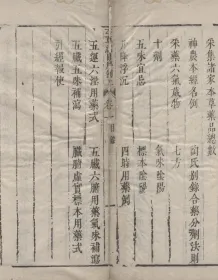 采集諸家本草藥品總數
神農本經名例　陶氏別錄合藥分劑法則
采藥六氣歲物　七方
十劑　氣味陰陽
五味宜忌　標本陰陽
升降浮沉　四時用藥例
五運六淫用藥式　五臟六腑用藥氣味補瀉
五臟五味補瀉　臟腑虛實標本用藥式
引經報使